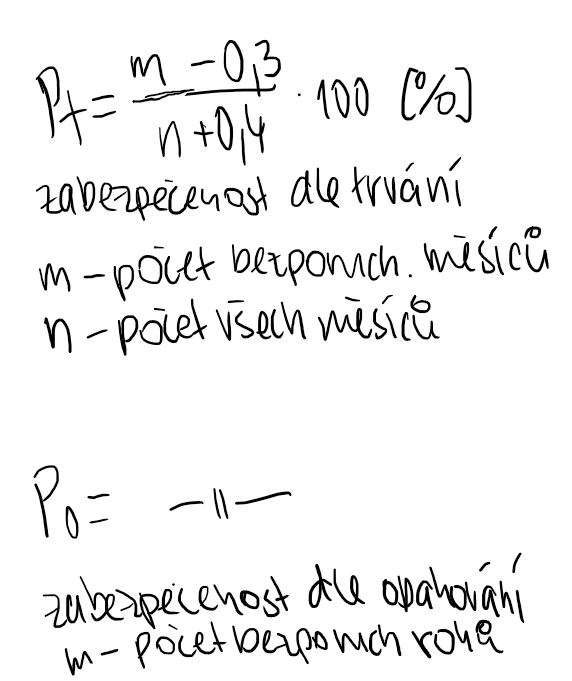 Pt = (m - 0,3) / (n + 0,4) · 100 [%]
zabezpečenost dle trvání
m - počet bezporuch. měsíců
n - počet všech měsíců
Po = —||—
zabezpečenost dle opakování
m - počet bezporuch roků